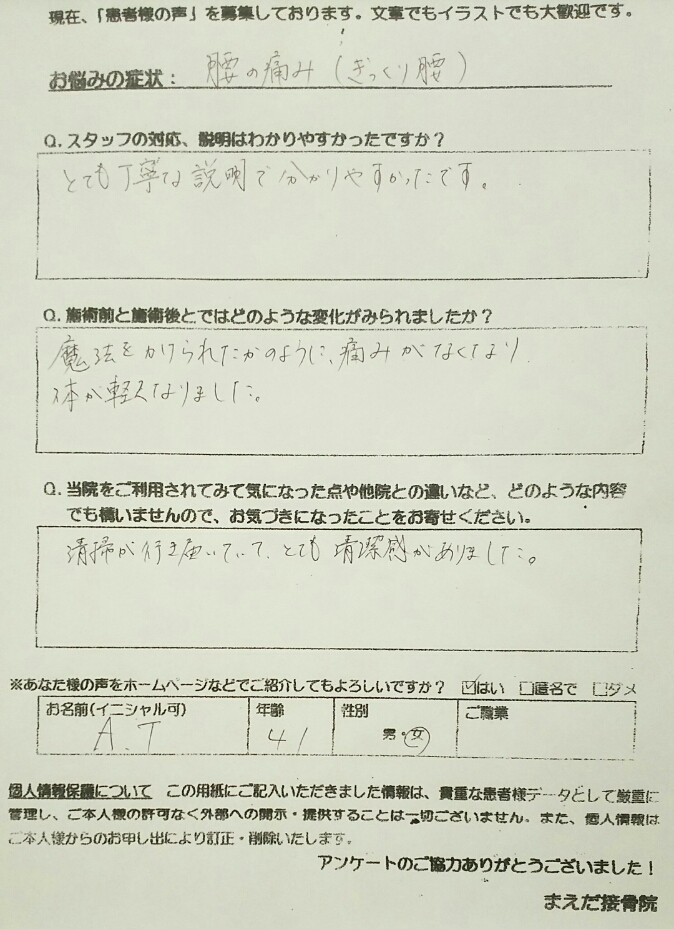 現在、「患者様の声」を募集しております。文章でもイラストでも大歓迎です。
お悩みの症状： 腰の痛み（ぎっくり腰）
Q. スタッフの対応、説明はわかりやすかったですか？
とても丁寧な説明で分かりやすかったです。
Q. 施術前と施術後とではどのような変化がみられましたか？
魔法をかけられたかのように、痛みがなくなり
体が軽くなりました。
Q. 当院をご利用されてみて気になった点や他院との違いなど、どのような内容
でも構いませんので、お気づきになったことをお寄せください。
清掃が行き届いていて、とても清潔感がありました。
※あなた様の声をホームページなどでご紹介してもよろしいですか？ ☑はい □匿名で □ダメ
お名前(イニシャル可) 年齢 性別 ご職業
A.T 41 男・女
個人情報保護について この用紙にご記入いただきました情報は、貴重な患者様データとして厳重に
管理し、ご本人様の許可なく外部への開示・提供することは一切ございません。また、個人情報は
ご本人様からのお申し出により訂正・削除いたします。
アンケートのご協力ありがとうございました！
まえだ接骨院